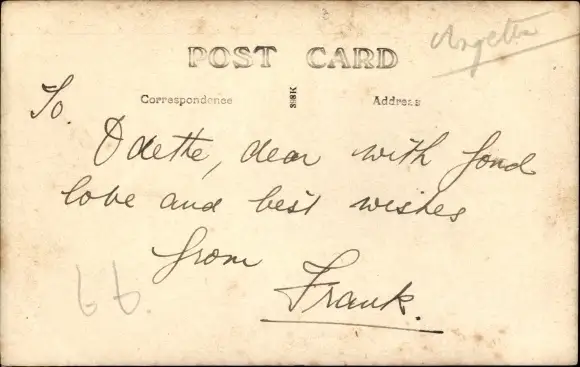 POST CARD
Correspondence
Address
To.
Odette, dear with fond
love and best wishes
from
Frank.